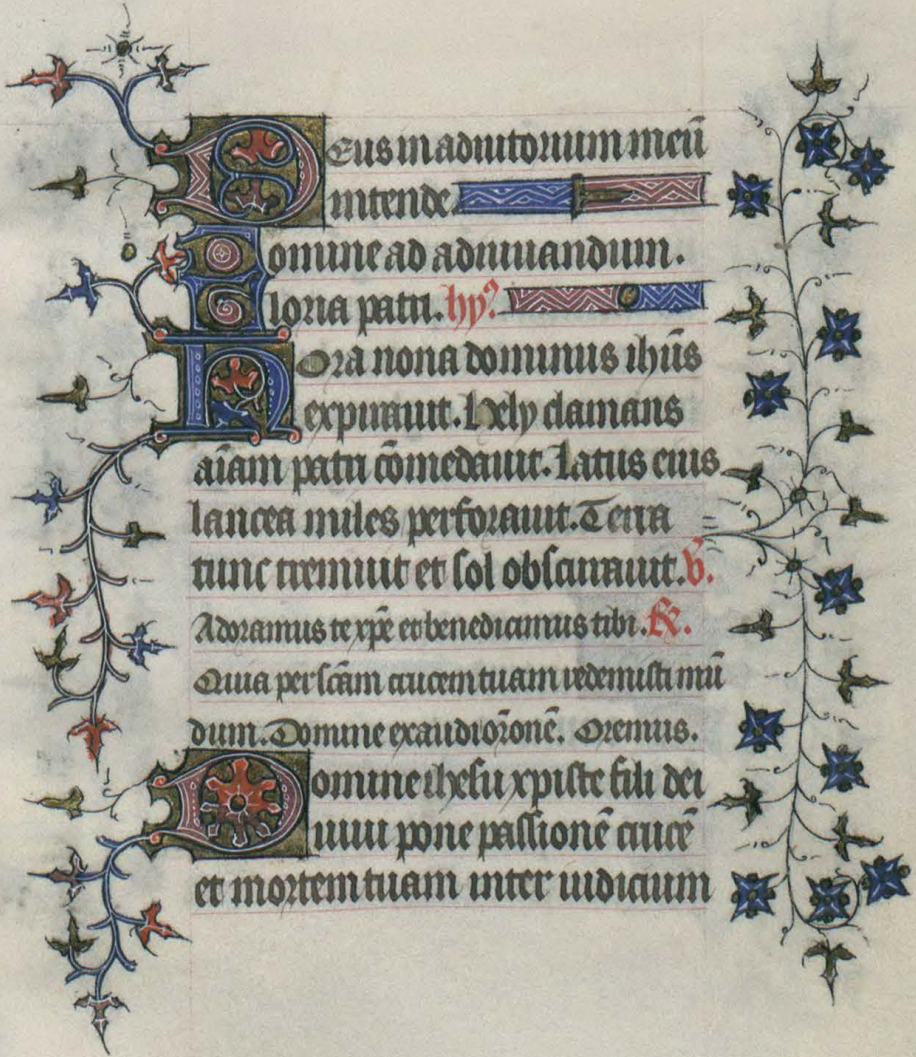 Deus in adiutorium meū
intende.
Domine ad adiuuandum.
Gloria patri. hyꝰ.
Hora nona dominus ihūs
expirauit. Hely clamans
aīam patri cōmedauit. Latus eius
lancea miles perforauit. Terra
tunc tremuit et sol obscurauit. v̄.
Adoramus te xp̄e et benedicimus tibi. ℟.
Quia per sc̄am crucem tuam redemisti mū
dum. Domine exaudi or̄onē. Oremus.
Domine ihesu xpiste fili dei
uiui pone passionē crucē
et mortem tuam inter iudicium